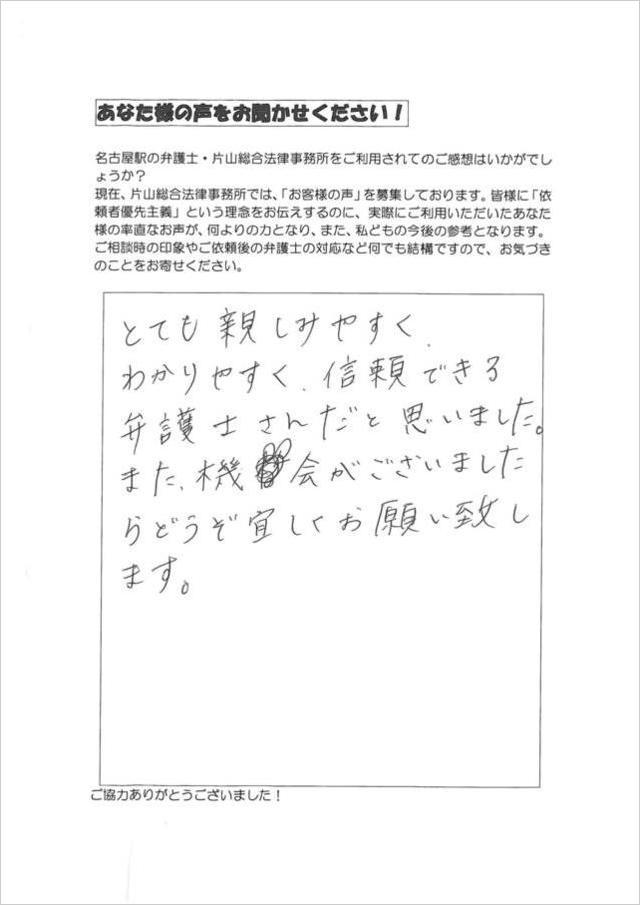 あなた様の声をお聞かせください！
名古屋駅の弁護士・片山総合法律事務所をご利用されてのご感想はいかがでし
ょうか？
現在、片山総合法律事務所では、「お客様の声」を募集しております。皆様に「依
頼者優先主義」という理念をお伝えするのに、実際にご利用いただいたあなた
様の率直なお声が、何よりの力となり、また、私どもの今後の参考となります。
ご相談時の印象やご依頼後の弁護士の対応など何でも結構ですので、お気づき
のことをお寄せください。
とても親しみやすく、
わかりやすく、信頼できる
弁護士さんだと思いました。
また、機会がございました
らどうぞ宜しくお願い致し
ます。
ご協力ありがとうございました！